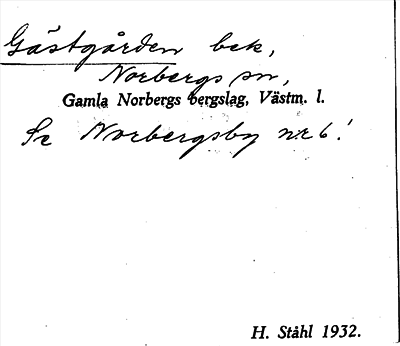 Gästgården bek,
Norbergs sn,
Gamla Norbergs bergslag, Västm. l.
Se Norbergsby nr 6!
H. Ståhl 1932.